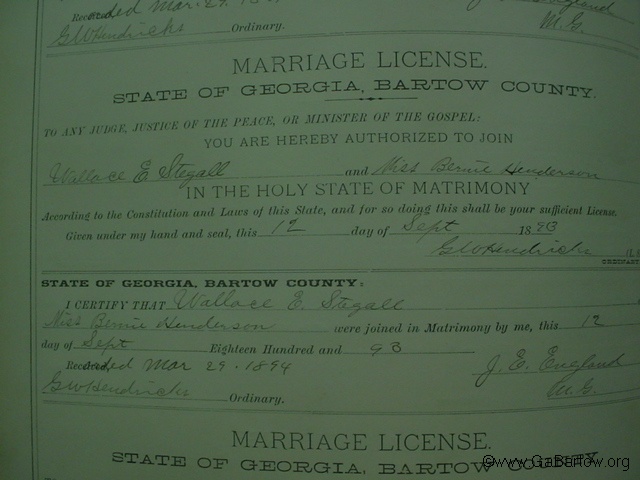 Recorded Mar. 29.
England
G W Hendricks Ordinary. M. G.
MARRIAGE LICENSE.
STATE OF GEORGIA, BARTOW COUNTY.
TO ANY JUDGE, JUSTICE OF THE PEACE, OR MINISTER OF THE GOSPEL:
YOU ARE HEREBY AUTHORIZED TO JOIN
Wallace E Stegall and Miss Bernie Henderson
IN THE HOLY STATE OF MATRIMONY
According to the Constitution and Laws of this State, and for so doing this shall be your sufficient License.
Given under my hand and seal, this 12 day of Sept 1893
G W Hendricks (L.S
ORDINARY
STATE OF GEORGIA, BARTOW COUNTY:
I CERTIFY THAT Wallace E. Stegall
Miss Bernie Henderson were joined in Matrimony by me, this 12
day of Sept Eighteen Hundred and 93
Recorded Mar 29. 1894 J. E. England
G W Hendricks Ordinary. M. G.
MARRIAGE LICENSE.
STATE OF GEORGIA, BARTOW COUNTY.
©www.GaBartow.org